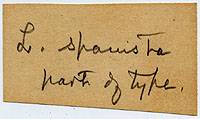 L. spanista
part of type.